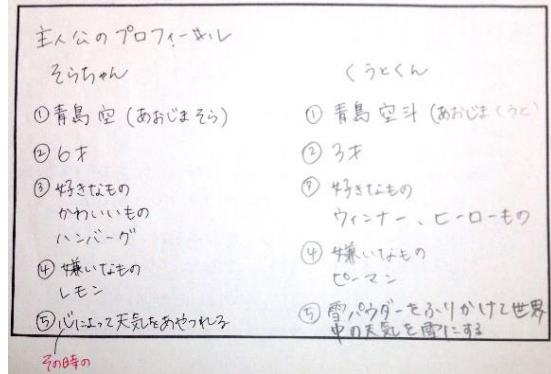 主人公のプロフィール
そらちゃん
①青島 空 (あおじま そら)
②6才
③好きなもの
かわいいもの
ハンバーグ
④嫌いなもの
レモン
⑤心によって天気をあやつれる
その時の
くうとくん
①青島 空斗 (あおじま くうと
②3才
③好きなもの
ウィンナー、ヒーローもの
④嫌いなもの
ピーマン
⑤雪パウダーをふりかけて世界
中の天気を雪にする